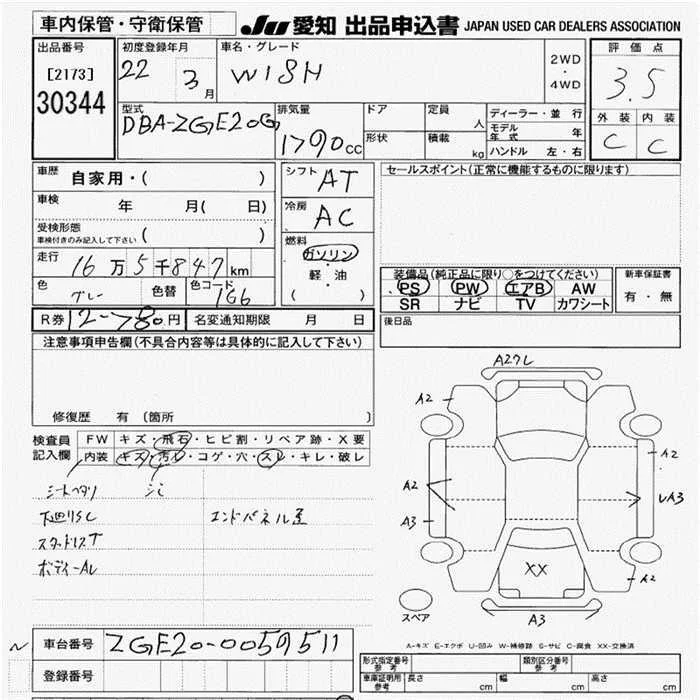 車内保管・守衛保管
JU 愛知 出品申込書 JAPAN USED CAR DEALERS ASSOCIATION
出品番号
[2173]
30344
初度登録年月
22 3月
車名・グレード
WISH
2WD
・
4WD
評価点
3.5
外装 内装
C C
型式
DBA-ZGE20G
排気量
1790cc
ドア
形状
定員 人
積載 kg
ディーラー・並行
モデル年式 年
ハンドル 左・右
車歴 自家用・( )
車検 年 月( 日)
受検形態
車検付きのみ記入して下さい ( )
走行 16万5千847km
色 グレー 色替 色コード 1G6
R券 12-780円 名変通知期限 月 日
シフト AT
冷房 AC
燃料
ガソリン
軽・油
( )
セールスポイント(正常に機能するものに限ります)
装備品(純正品に限り○をつけてください)
PS PW エアB AW
SR ナビ TV カワシート
新車保証書
有・無
後日品
注意事項申告欄(不具合内容等は具体的に記入して下さい)
修復歴 有 (箇所 )
検査員記入欄
FW キズ・飛石・ヒビ割・リペア跡・X要
内装 キズ・汚レ・コゲ・穴・スレ・キレ・破レ
シートヘタリ シミ
下廻りSC エンドパネル歪
スタッドレスT
ボディーAL
A2クレ
A2
A2
A2
A3
レA3
XX
A2
A3
スペア
A-キズ E-エクボ U-凹み W-補修跡 S-サビ C-腐食 XX-交換済
車台番号 ZGE20-0059511
登録番号
型式指定番号 参考
類別区分番号 参考
車庫証明用 参考 長さ cm 幅 cm 高さ cm